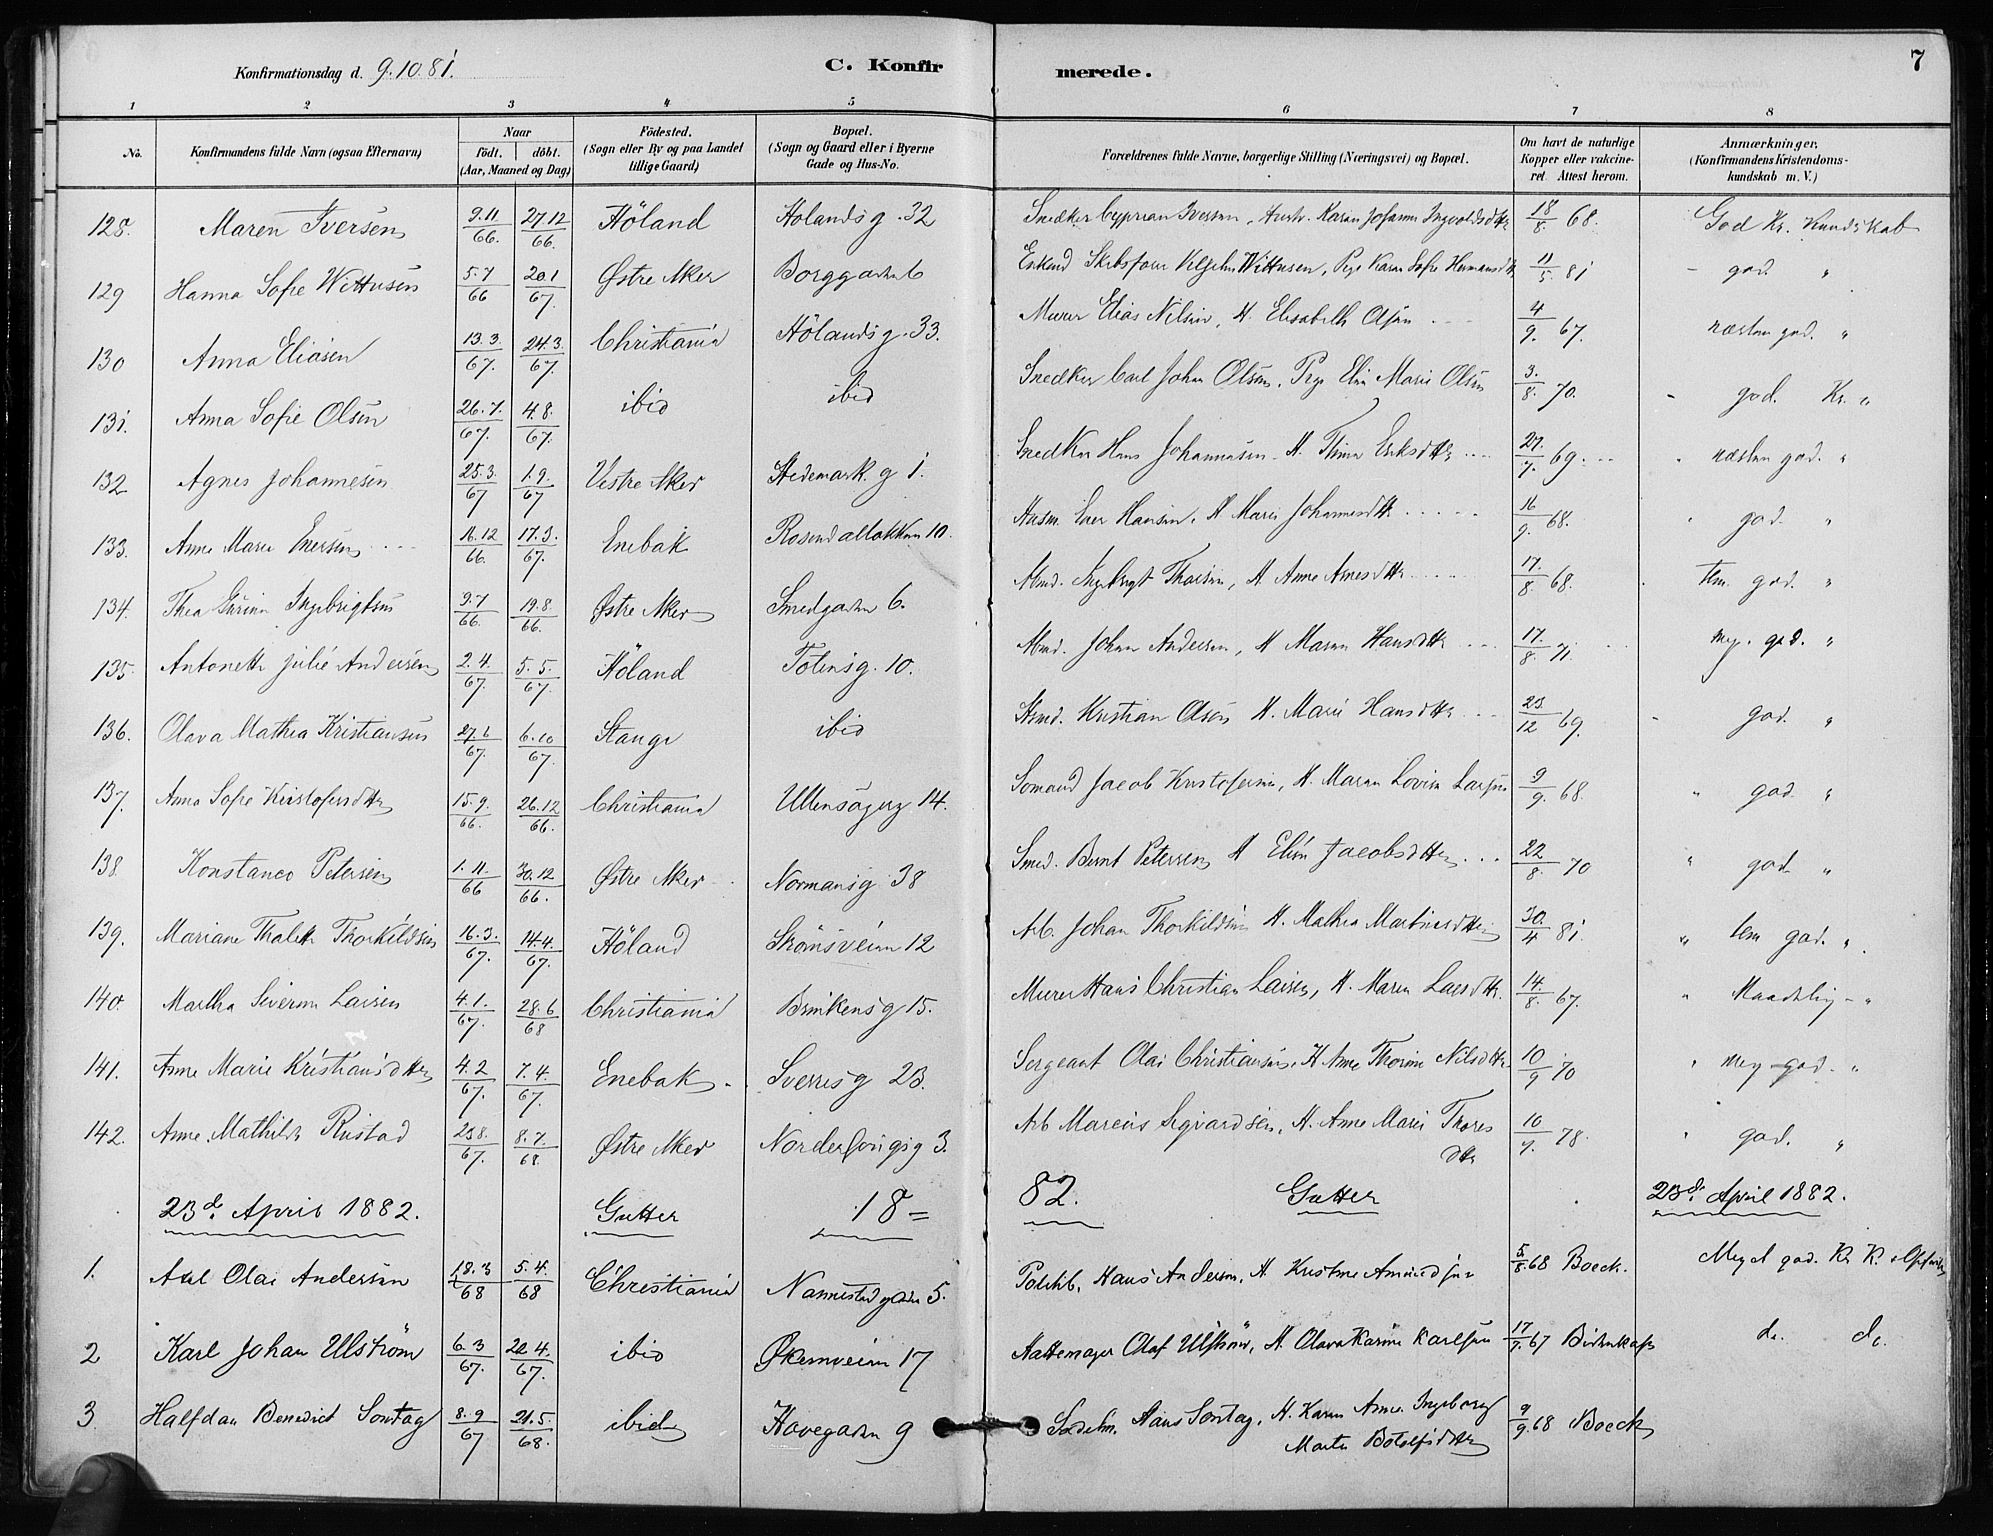 7
Konfirmationsdag d. 9.10.81.
C. Konfir
merede.
1 2 3 4 5 6 7 8
No.
Konfirmandens fulde Navn (ogsaa Efternavn)
Naar
födt. döbt.
(Aar, Maaned og Dag)
Födested.
(Sogn eller By og paa Landet
tillige Gaard)
Bopæl.
(Sogn og Gaard eller i Byerne
Gade og Hus-No.
Forældrenes fulde Navne, borgerlige Stilling (Næringsvei) og Bopæl.
Om havt de naturlige
Kopper eller vakcine-
ret. Attest herom.
Anmærkninger.
(Konfirmandens Kristendoms-
kundskab m. V.)
128. Maren Iversen 9.11/66. 27.12/66. Höland Hölandsg. 32 Snedker Cyprian Iversen, Hustr. Karen Johanne Ingvoldsdtr 18/8. 68. God Kr. Kundskab
129 Hanna Sofie Wittusen 5.7/66 20.1/67. Østre Aker Borggaden 6 Wittusen, Pige Karen Sofie Hermansdtr 11/5 81 - god "
130 Anna Eliasen 13.3./67. 24.3./67. Christiania Hölandsg. 33. Murer Elias Nilsen, H. Elisabeth Olsen 4/9. 67. næsten god. "
131. Anna Sofie Olsen 26.7./67. 4.8./67. ibid ibid Snedker Carl Johan Olsen, Pige Elin Marie Olsen 3./8. 70. - god. Kr. "
132 Agnes Johannesen 25.3/67 1.9./67 Vestre Aker Hedemark.g 1. Snedker Hans Johannesen, H. Eriksdtr 27./7. 69. " næsten god. "
133. Anne Marie Enersen 16.12/66. 17.3./67. Enebak Rosendalløkken 10. Ener Hansen, H Marie Johannesdtr 16/9. 68. " god. "
134. Thea Ingebrigtsen 9.7/66. 19.8./66. Østre Aker Smedgaden 6. Ingebrigt Thorsen, H Anne Arnesdtr 17./8 68. tem. god. "
135. Antonette Julie Andersen 2.4./67. 5.5./67. Höland Totensg. 10. Johan Andersen, H Maren Hansdtr 17./8. 71. meg. god. "
136. Olava Mathea Kristiansen 27.1/67. 6.10/67. Stange ibid Kristian Olsen H. Marie Hansdtr 23/12 69. - god. "
137. Anna Sofie Kristofersdtr 15.9./66. 26.12/66. Christiania Ullensagerg 14. Somand Jacob Kristofersen, H. Maren Lovise Larsen 9/9. 68 " god. "
138 Konstance Petersen 1.11./66 30.12/66. Østre Aker Normansg. 38 Smed. Bernt Petersen, H Elin Jacobsdtr 22/8. 70 " god "
139. Mariane Thalette Thorkildsen 16.3./67. 14.4./67. Höland Strömsveien 12 Arb. Johan Thorkildsen H. Mathea Martinsdtr 30./4 81. " tem god. "
140. Martha Severine Larsen 4.1./67. 28.6/68 Christiania Brinkensg 15. Murer Hans Christian Larsen, H. Maren Larsdtr. 14./8. 67. " Maadelig - "
141. Anne Marie Kristiansdtr 4.2/67. 7.4./67. Enebak. Sverresg 23. Sergeant Olai Christiansen, H Anne Thorine Nilsdtr 10/9 70 " meg god. "
142. Anne Mathilde Rustad 23.8./67. 8.7./68. Østre Aker Norderhovgsg 3. Arb Marcus Sigvardsen, H. Anne Marie Thores
dtr 10/9. 78. " god. "
23d. April 1882. Gutter 18= 82. Gutter 23d. April 1882.
1. Axel Olai Andersen 18.3/68 5.4./68 Christiania Nannestadgaden 5. Politib. Hans Andersen, H. Kristine Amundsen 5/8. 68 Boeck. Meget god. Kr K.
2 Karl Johan Ullström 6.3/67. 22.4./67. ibid Økernveien 17 Hattemager Olaf Ullström, H. Olava Karine Karlsen 17/9. 67 Bidenkap do. do.
3 Halfdan Benedict Sontag 8.9/67 21.5./68. ibid Havegaden 9 Sadelm. Hans Sontag, H. Karen Anne Ingeborg
Marte Botolfsdtr 9/9. 68 Boeck